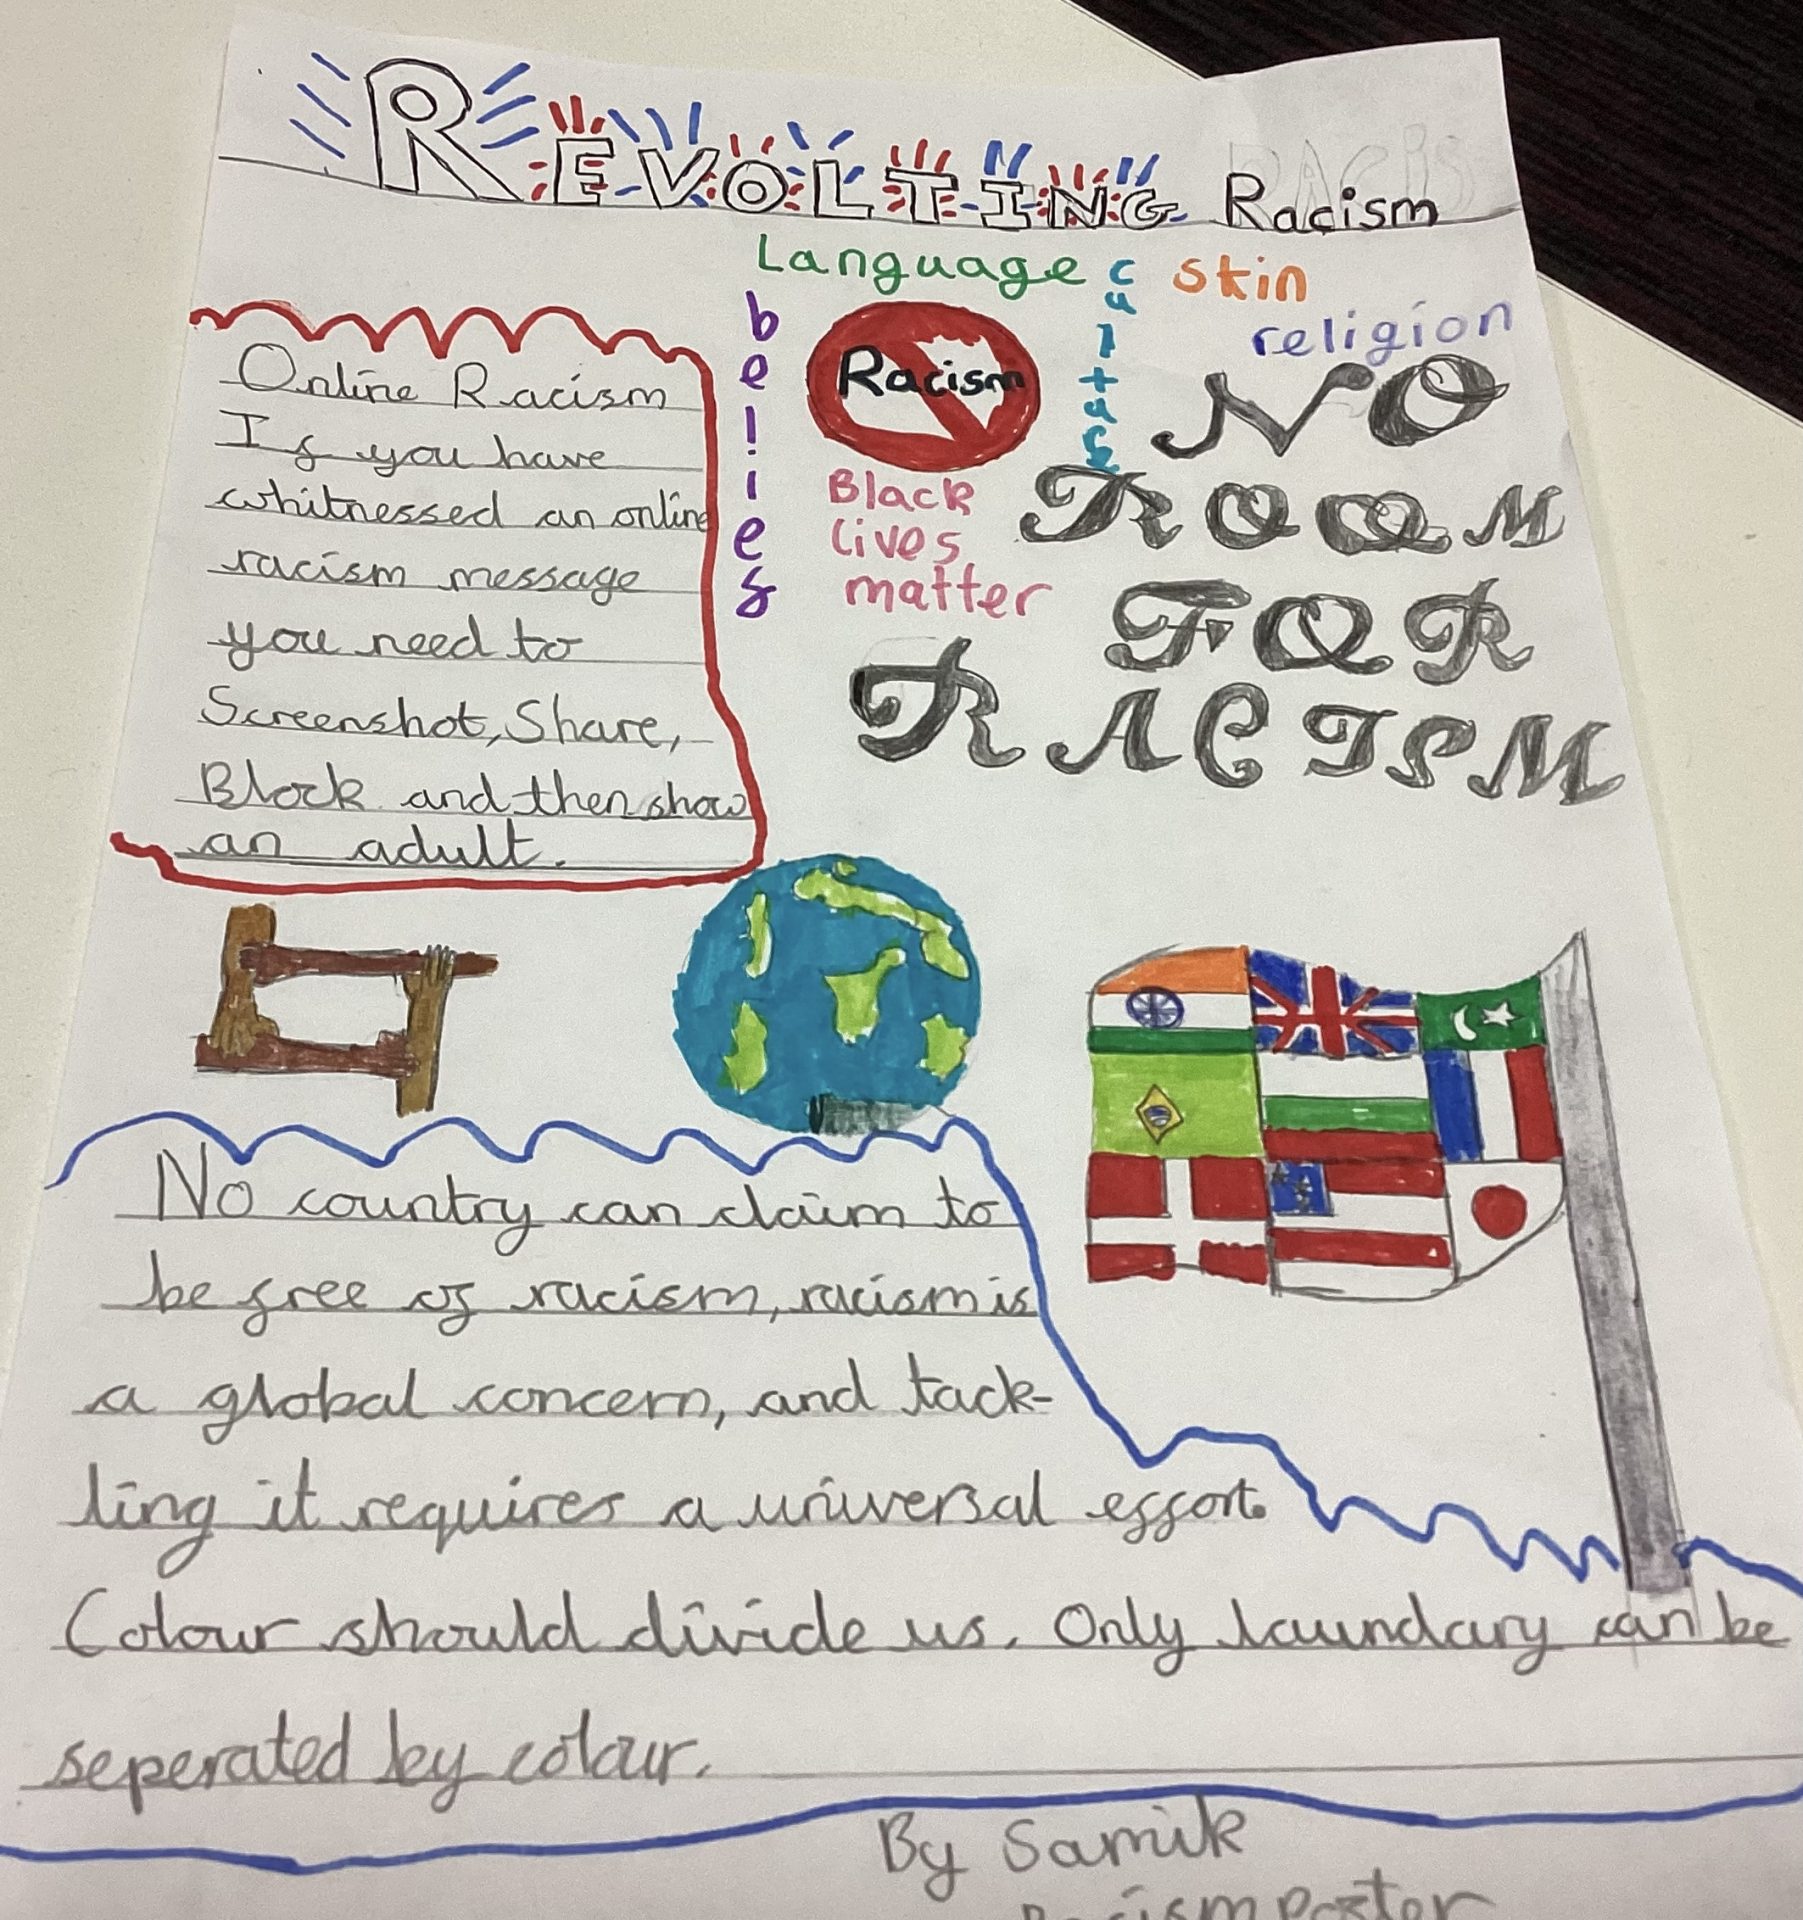 REVOLTING Racism
Language culture skin
religion
beliefs
Racism
Black
lives
matter
NO
ROOM
FOR
RACISM
Online Racism
If you have
whitnessed an online
racism message
you need to
Screenshot, Share,
Block and then show
an adult.
No country can claim to
be free of racism, racism is
a global concern, and tack-
ling it requires a universal effort.
Colour should divide us. Only laundary can be
seperated by colour.
By Samik
Racism Poster